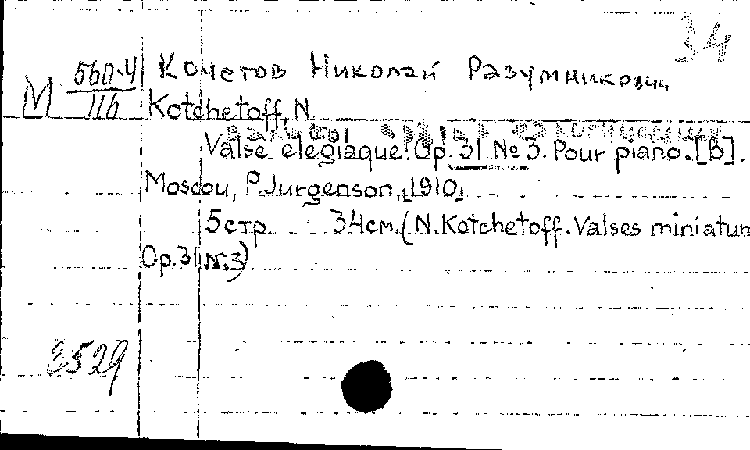 34
М 5бп-4/116
Кочетов Николай Разумникович
Kotchetoff, N.
Valse elegiaque. Op. 31 № 3. Pour piano. [B].
Moscou, P. Jurgenson, [1910]
5 стр. 34 см. (N. Kotchetoff. Valses miniatun
Op. 31 N. 3)
3529